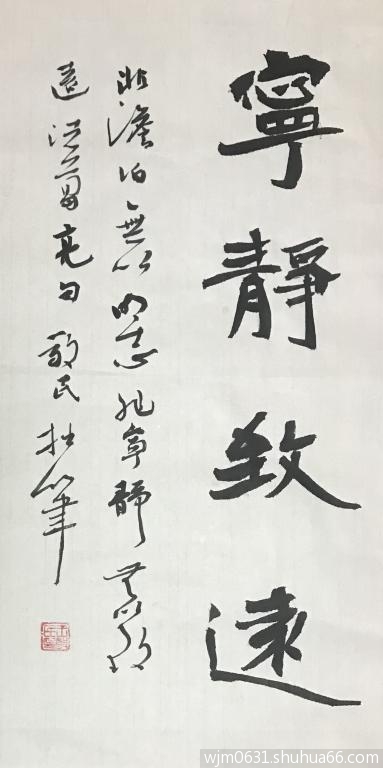 寧靜致遠
非澹泊無以明志非寧靜无以致
遠諸葛亮句敬民拙筆
wjm0631.shuhua66.com